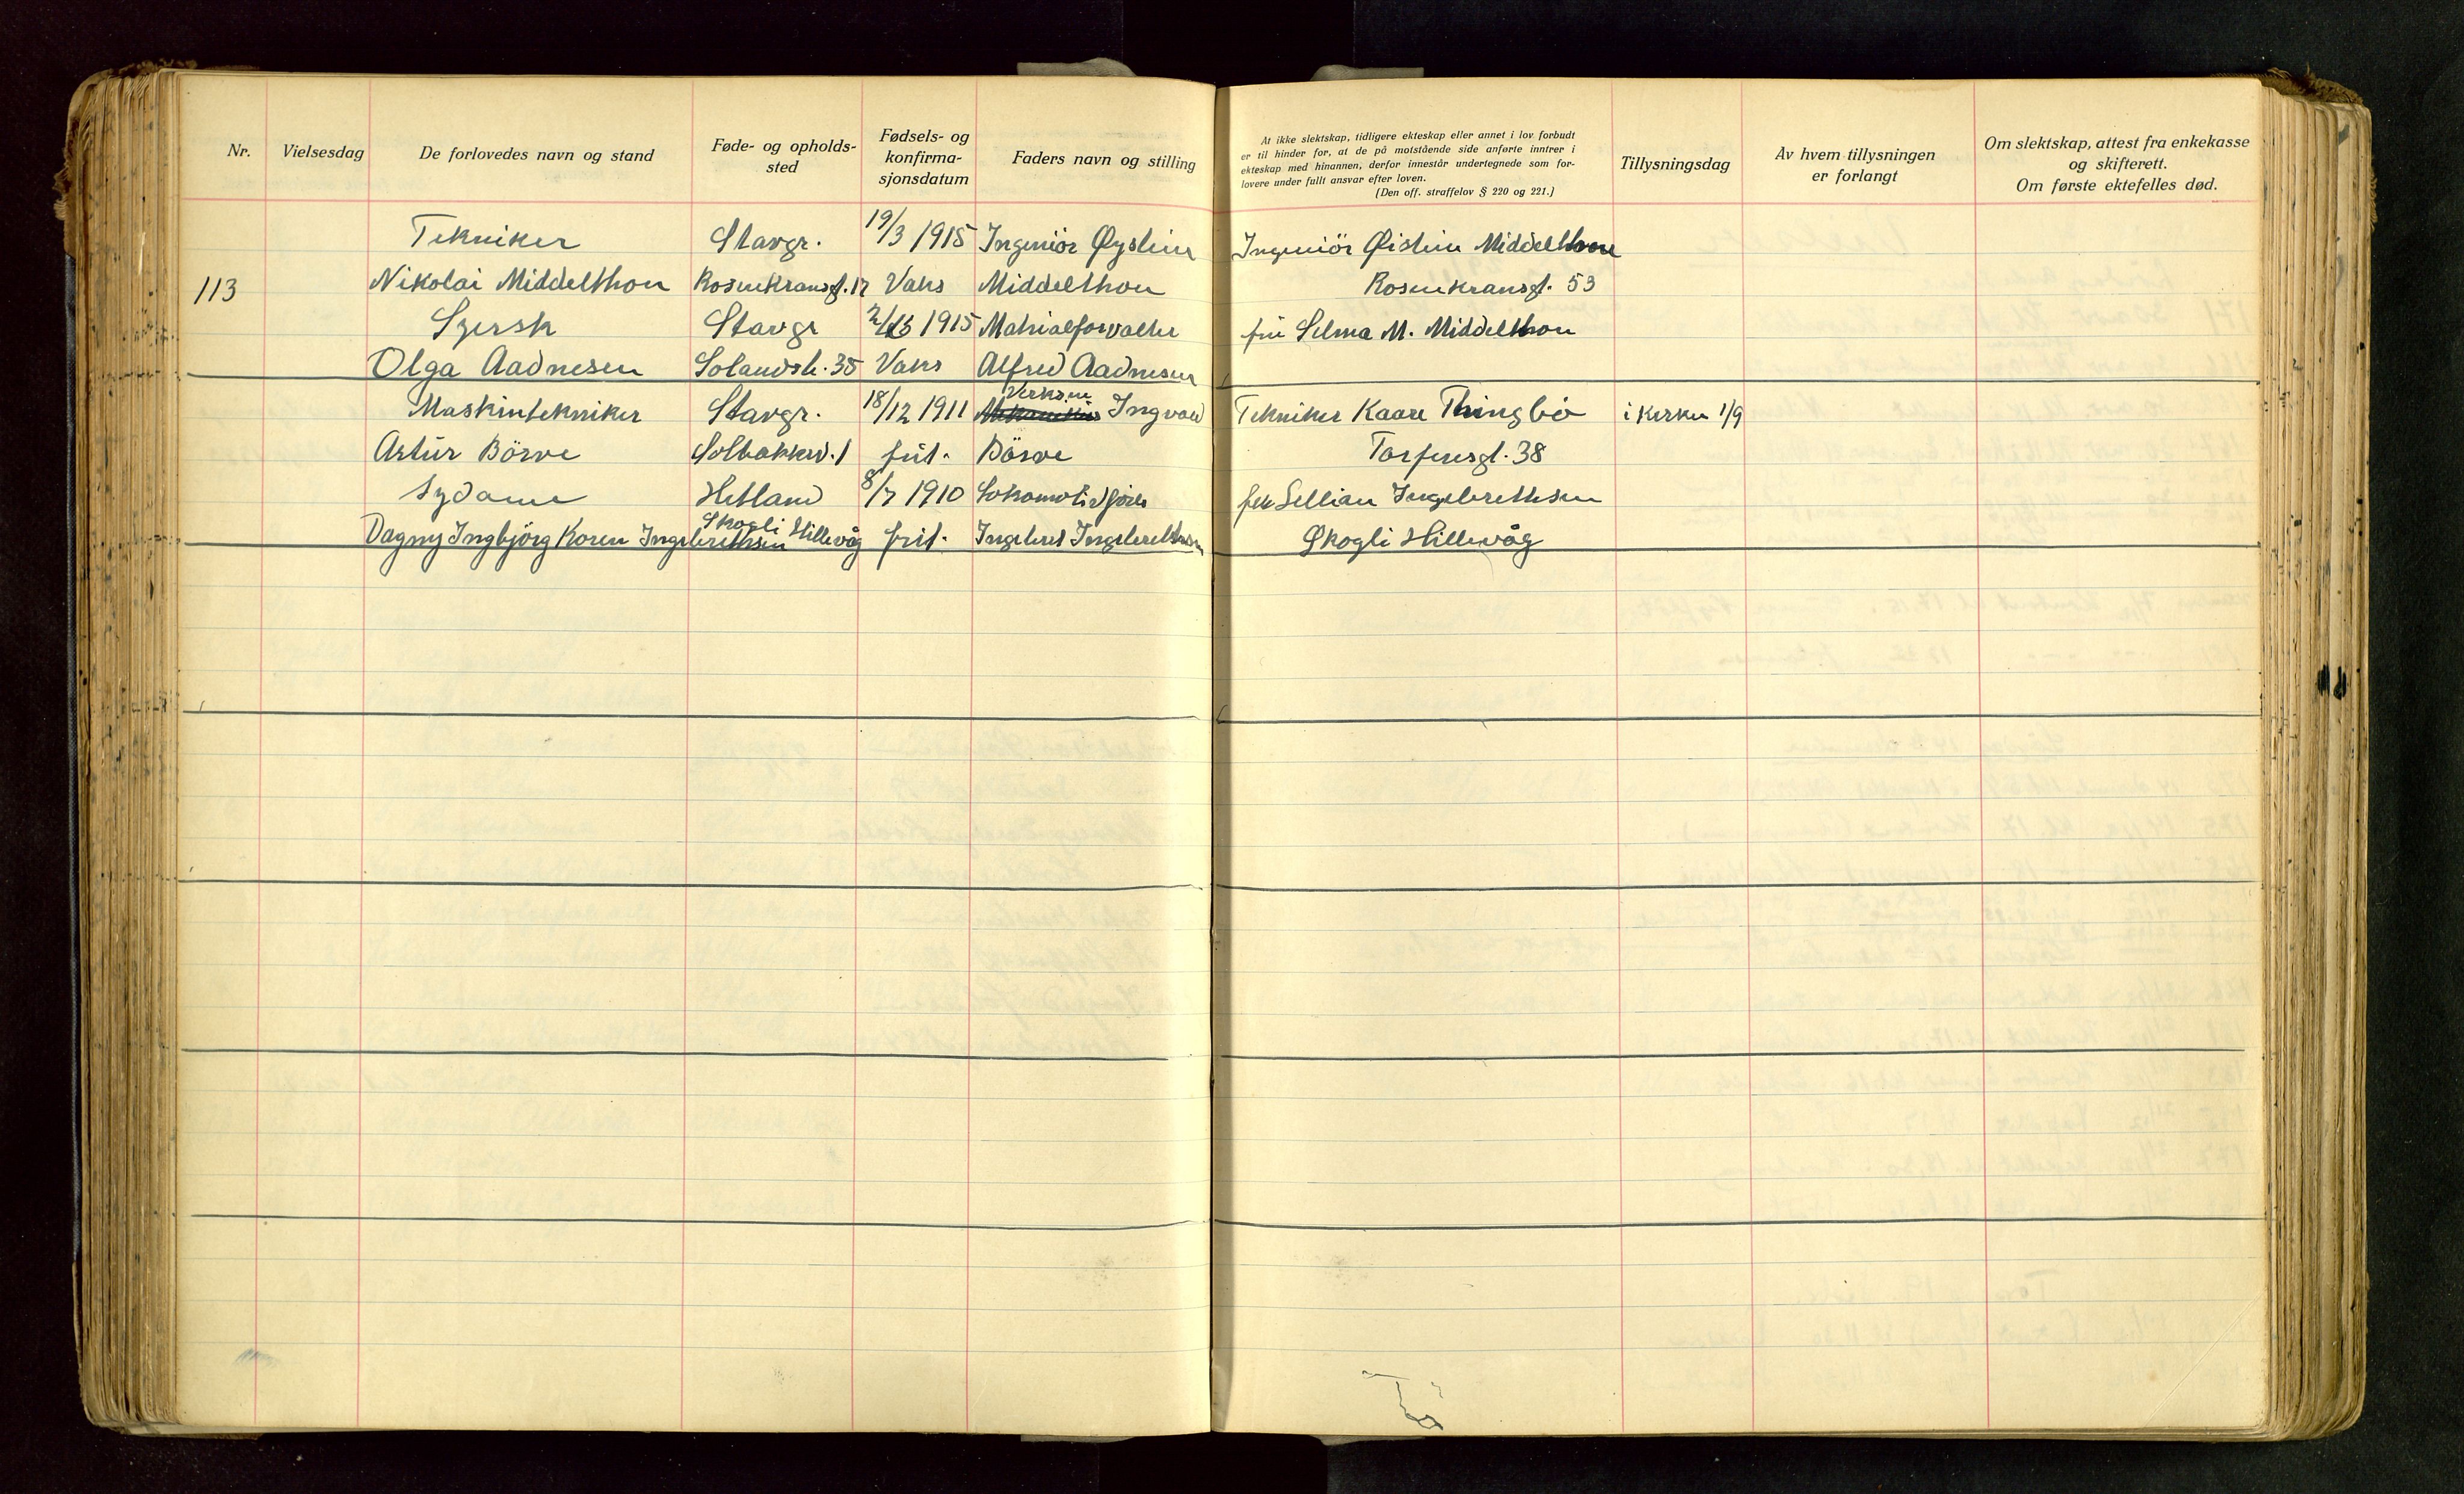 Nr.
Vielsesdag
De forlovedes navn og stand
Føde- og opholds-
sted
Fødsels- og
konfirma-
sjonsdatum
Faders navn og stilling
At ikke slektskap, tidligere ekteskap eller annet i lov forbudt
er til hinder for, at de på motstående side anførte inntrer i
ekteskap med hinannen, derfor innestår undertegnede som for-
lovere under fullt ansvar efter loven.
(Den off. straffelov § 220 og 221.)
Tillysningsdag
Av hvem tillysningen
er forlangt
Om slektskap, attest fra enkekasse
og skifterett.
Om første ektefelles død.
Tekniker Stavgr. 19/3 1915 Ingeniör Øystein Ingeniör Øistein Middelthon
113 Nikolai Middelthon Rosenkransgt. 17 Vaks Middelthon Rosenkransgt. 53
Stavgr 1915 Matrialforvalter fru Selma M. Middelthon
Olga Aadnesen Solandsb. 35 Vaks Alfred Aadnesen
Verksm
Maskintekniker Stavgr. 18/12 1911 Ingvald Tekniker Kaare Thingbö i kirken 1/9
Artur Börve Solbakkev. 1 frit. Börve Torfeusgt. 38
Sydame Hetland 8/7 1910 Lokomotivförer frk Lillian Ingebrethsen
Skogli Hillevåg
Dagny Ingbjörg Koren Ingebrethsen frit. Ingebret Ingebrethsen Skogli Hillevåg